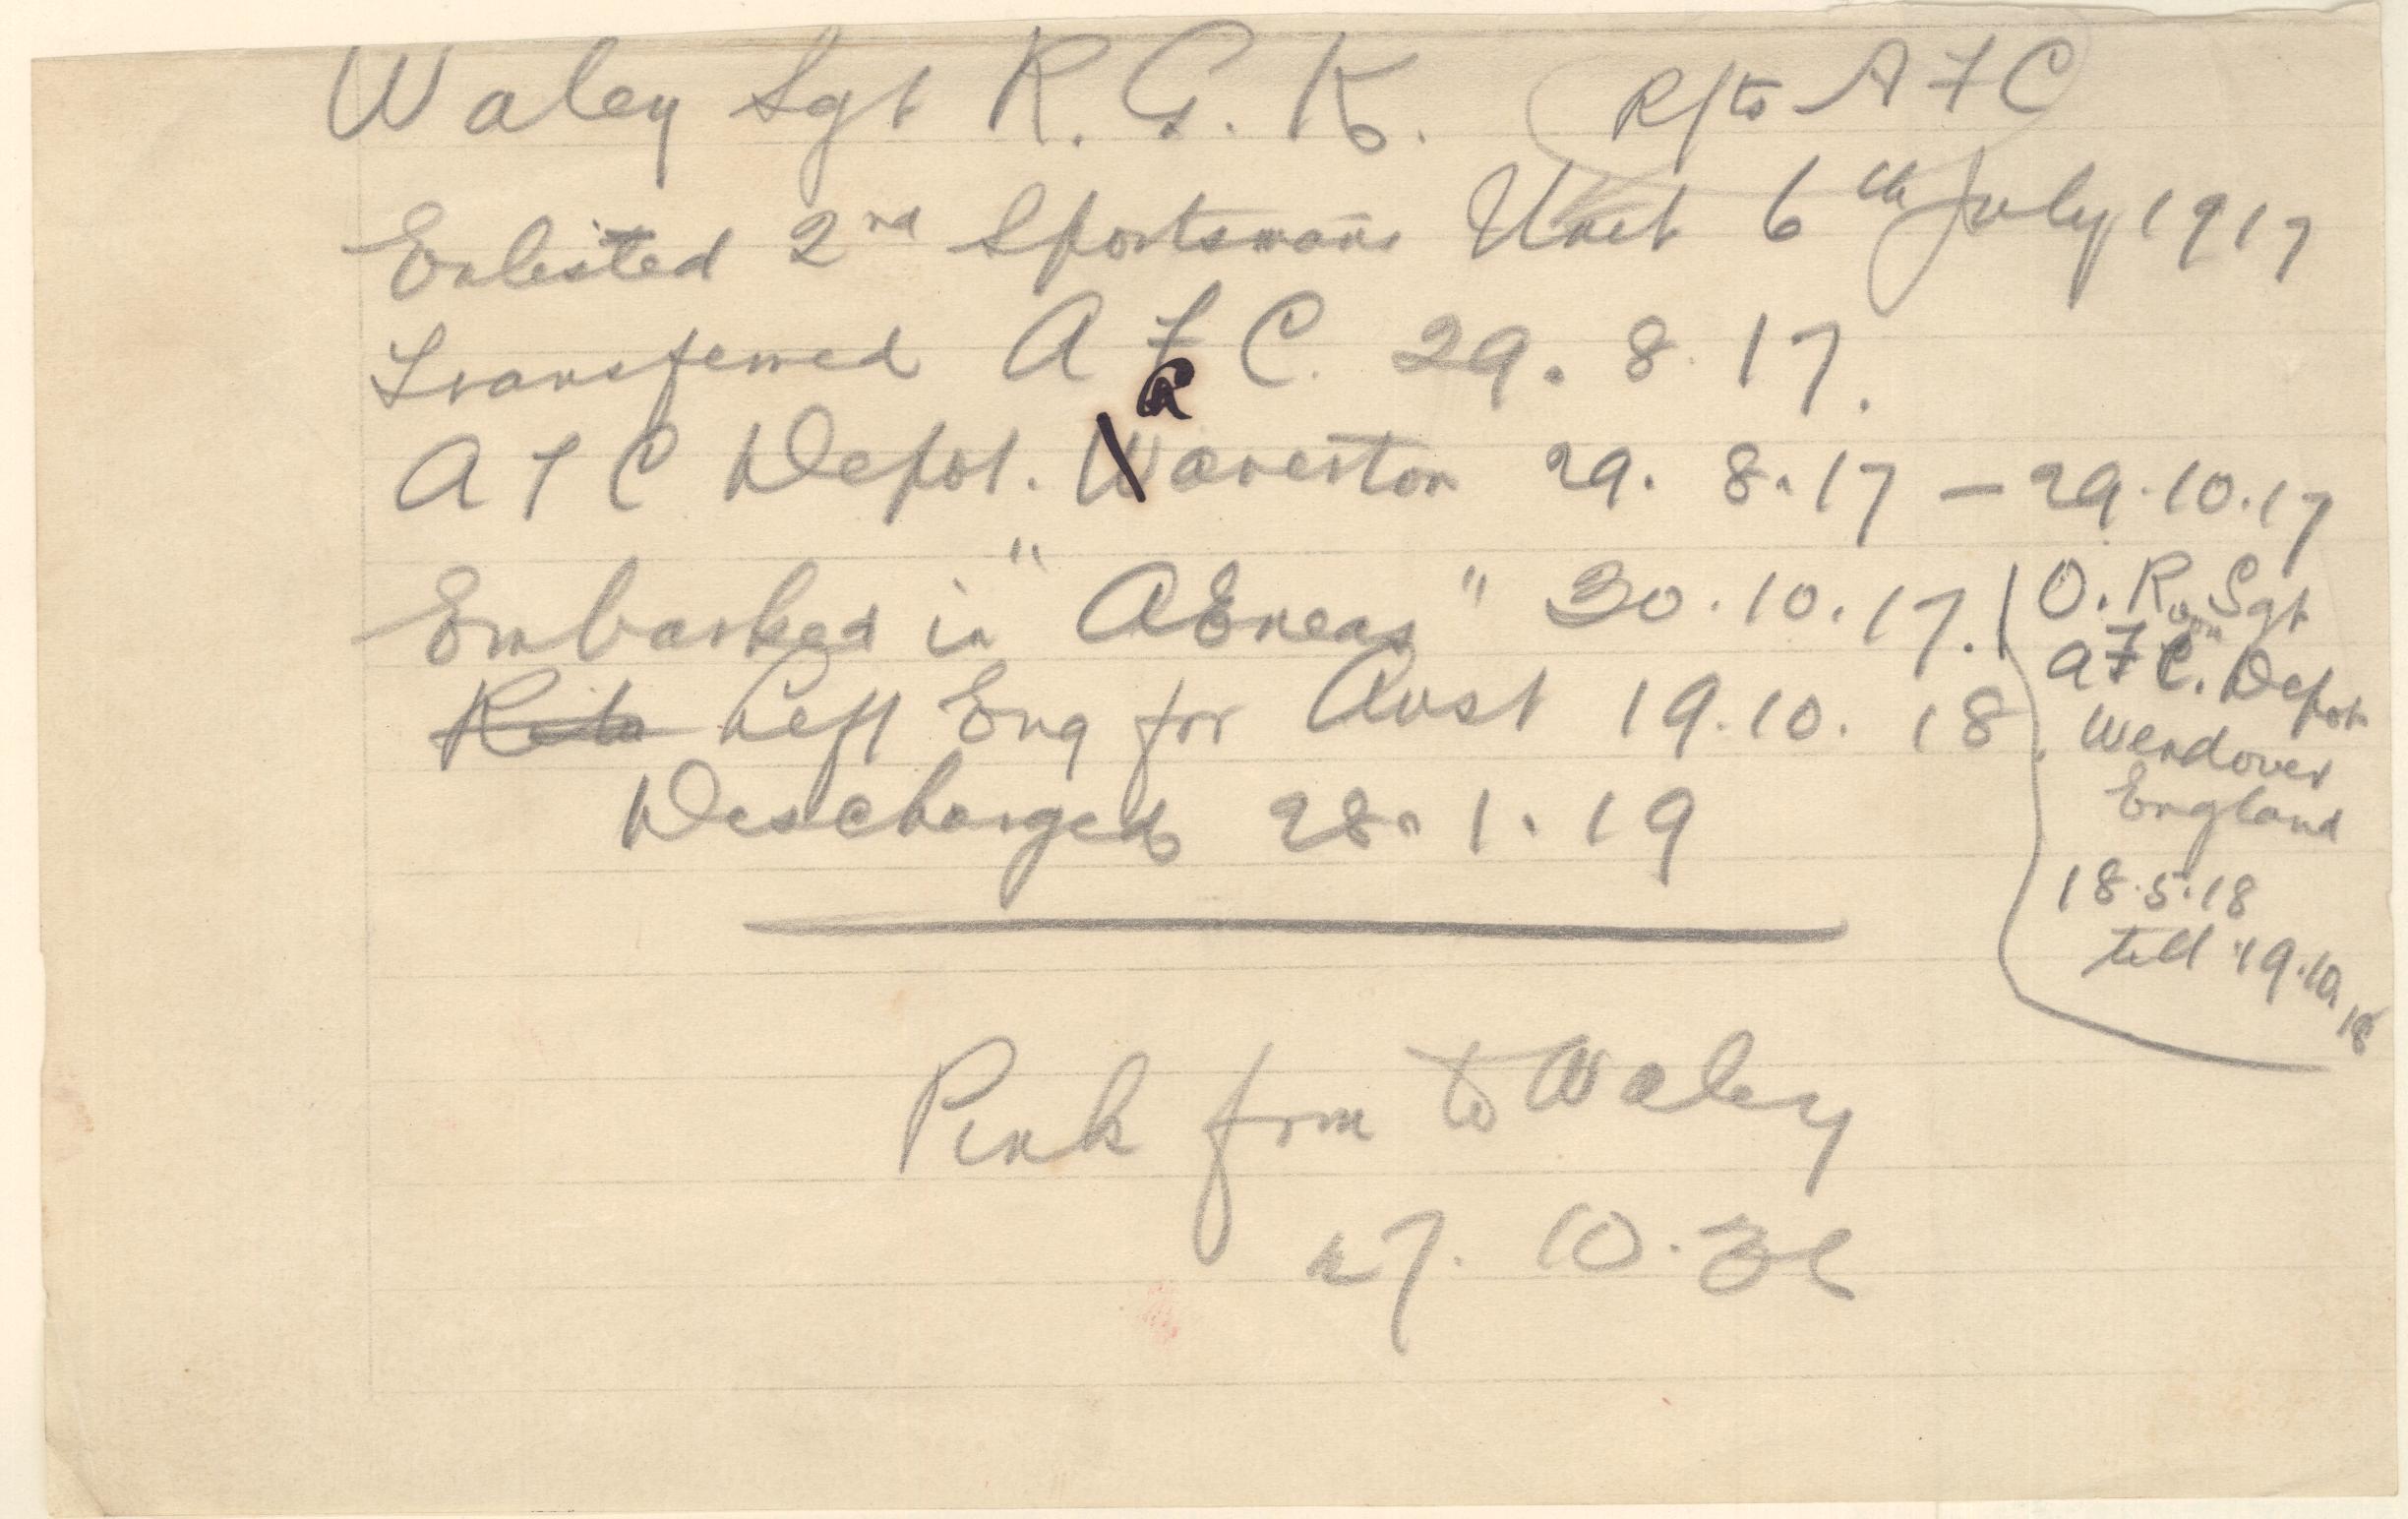 Waley Sgt R. G. K. R/ts A F C
Enlisted 2nd Sportsmans Unit 6th July 1917
Transferred A F C. 29. 8. 17.
A F C Depot. Waverton 29. 8. 17 — 29.10.17
Embarked in "AEneas" 30.10.17.
Left Eng for Aust 19.10.18.
Discharged 28.1.19
O. Room Sgt
A F C. Depot
Wendover
England
18.5.18
till 19.10.18
Pink form to Waley
27.10.